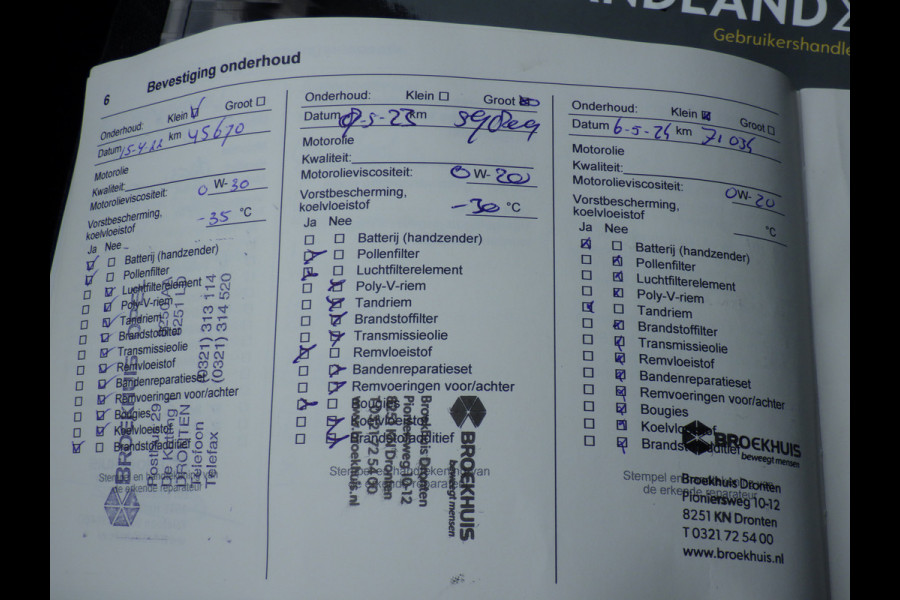 ANDLAND
Gebruikershandle
6
Bevestiging onderhoud
Onderhoud: Klein Groot
Datum 15-4-22 km 45670
Motorolie
Kwaliteit:
Motorolieviscositeit: 0 W- 30
Vorstbescherming,
koelvloeistof -35 °C
Ja Nee
Batterij (handzender)
Pollenfilter
Luchtfilterelement
Poly-V-riem
Tandriem
Brandstoffilter
Transmissieolie
Remvloeistof
Bandenreparatieset
Remvoeringen voor/achter
Bougies
Koelvloeistof
Brandstofadditief
Stempel en handtekening van
de erkende reparateur
BROEKHUIS
Postbus 29
De Ketting
DRONTEN
Telefoon (0321) 313 114
Telefax (0321) 314 520
Onderhoud: Klein Groot
Datum 8-5-23 km
Motorolie
Kwaliteit:
Motorolieviscositeit: 0 W- 20
Vorstbescherming,
koelvloeistof -30 °C
Ja Nee
Batterij (handzender)
Pollenfilter
Luchtfilterelement
Poly-V-riem
Tandriem
Brandstoffilter
Transmissieolie
Remvloeistof
Bandenreparatieset
Remvoeringen voor/achter
Bougies
Koelvloeistof
Brandstofadditief
Stempel en handtekening van
de erkende reparateur
BROEKHUIS
beweegt mensen
Broekhuis Dronten
Pioniersweg 10-12
8251 KN Dronten
T 0321 72 54 00
www.broekhuis.nl
Onderhoud: Klein Groot
Datum 6-5-24 km 71034
Motorolie
Kwaliteit:
Motorolieviscositeit: 0W- 20
Vorstbescherming,
koelvloeistof °C
Ja Nee
Batterij (handzender)
Pollenfilter
Luchtfilterelement
Poly-V-riem
Tandriem
Brandstoffilter
Transmissieolie
Remvloeistof
Bandenreparatieset
Remvoeringen voor/achter
Bougies
Koelvloeistof
Brandstofadditief
Stempel en
de erkende reparateur
BROEKHUIS
beweegt mensen
Broekhuis Dronten
Pioniersweg 10-12
8251 KN Dronten
T 0321 72 54 00
www.broekhuis.nl